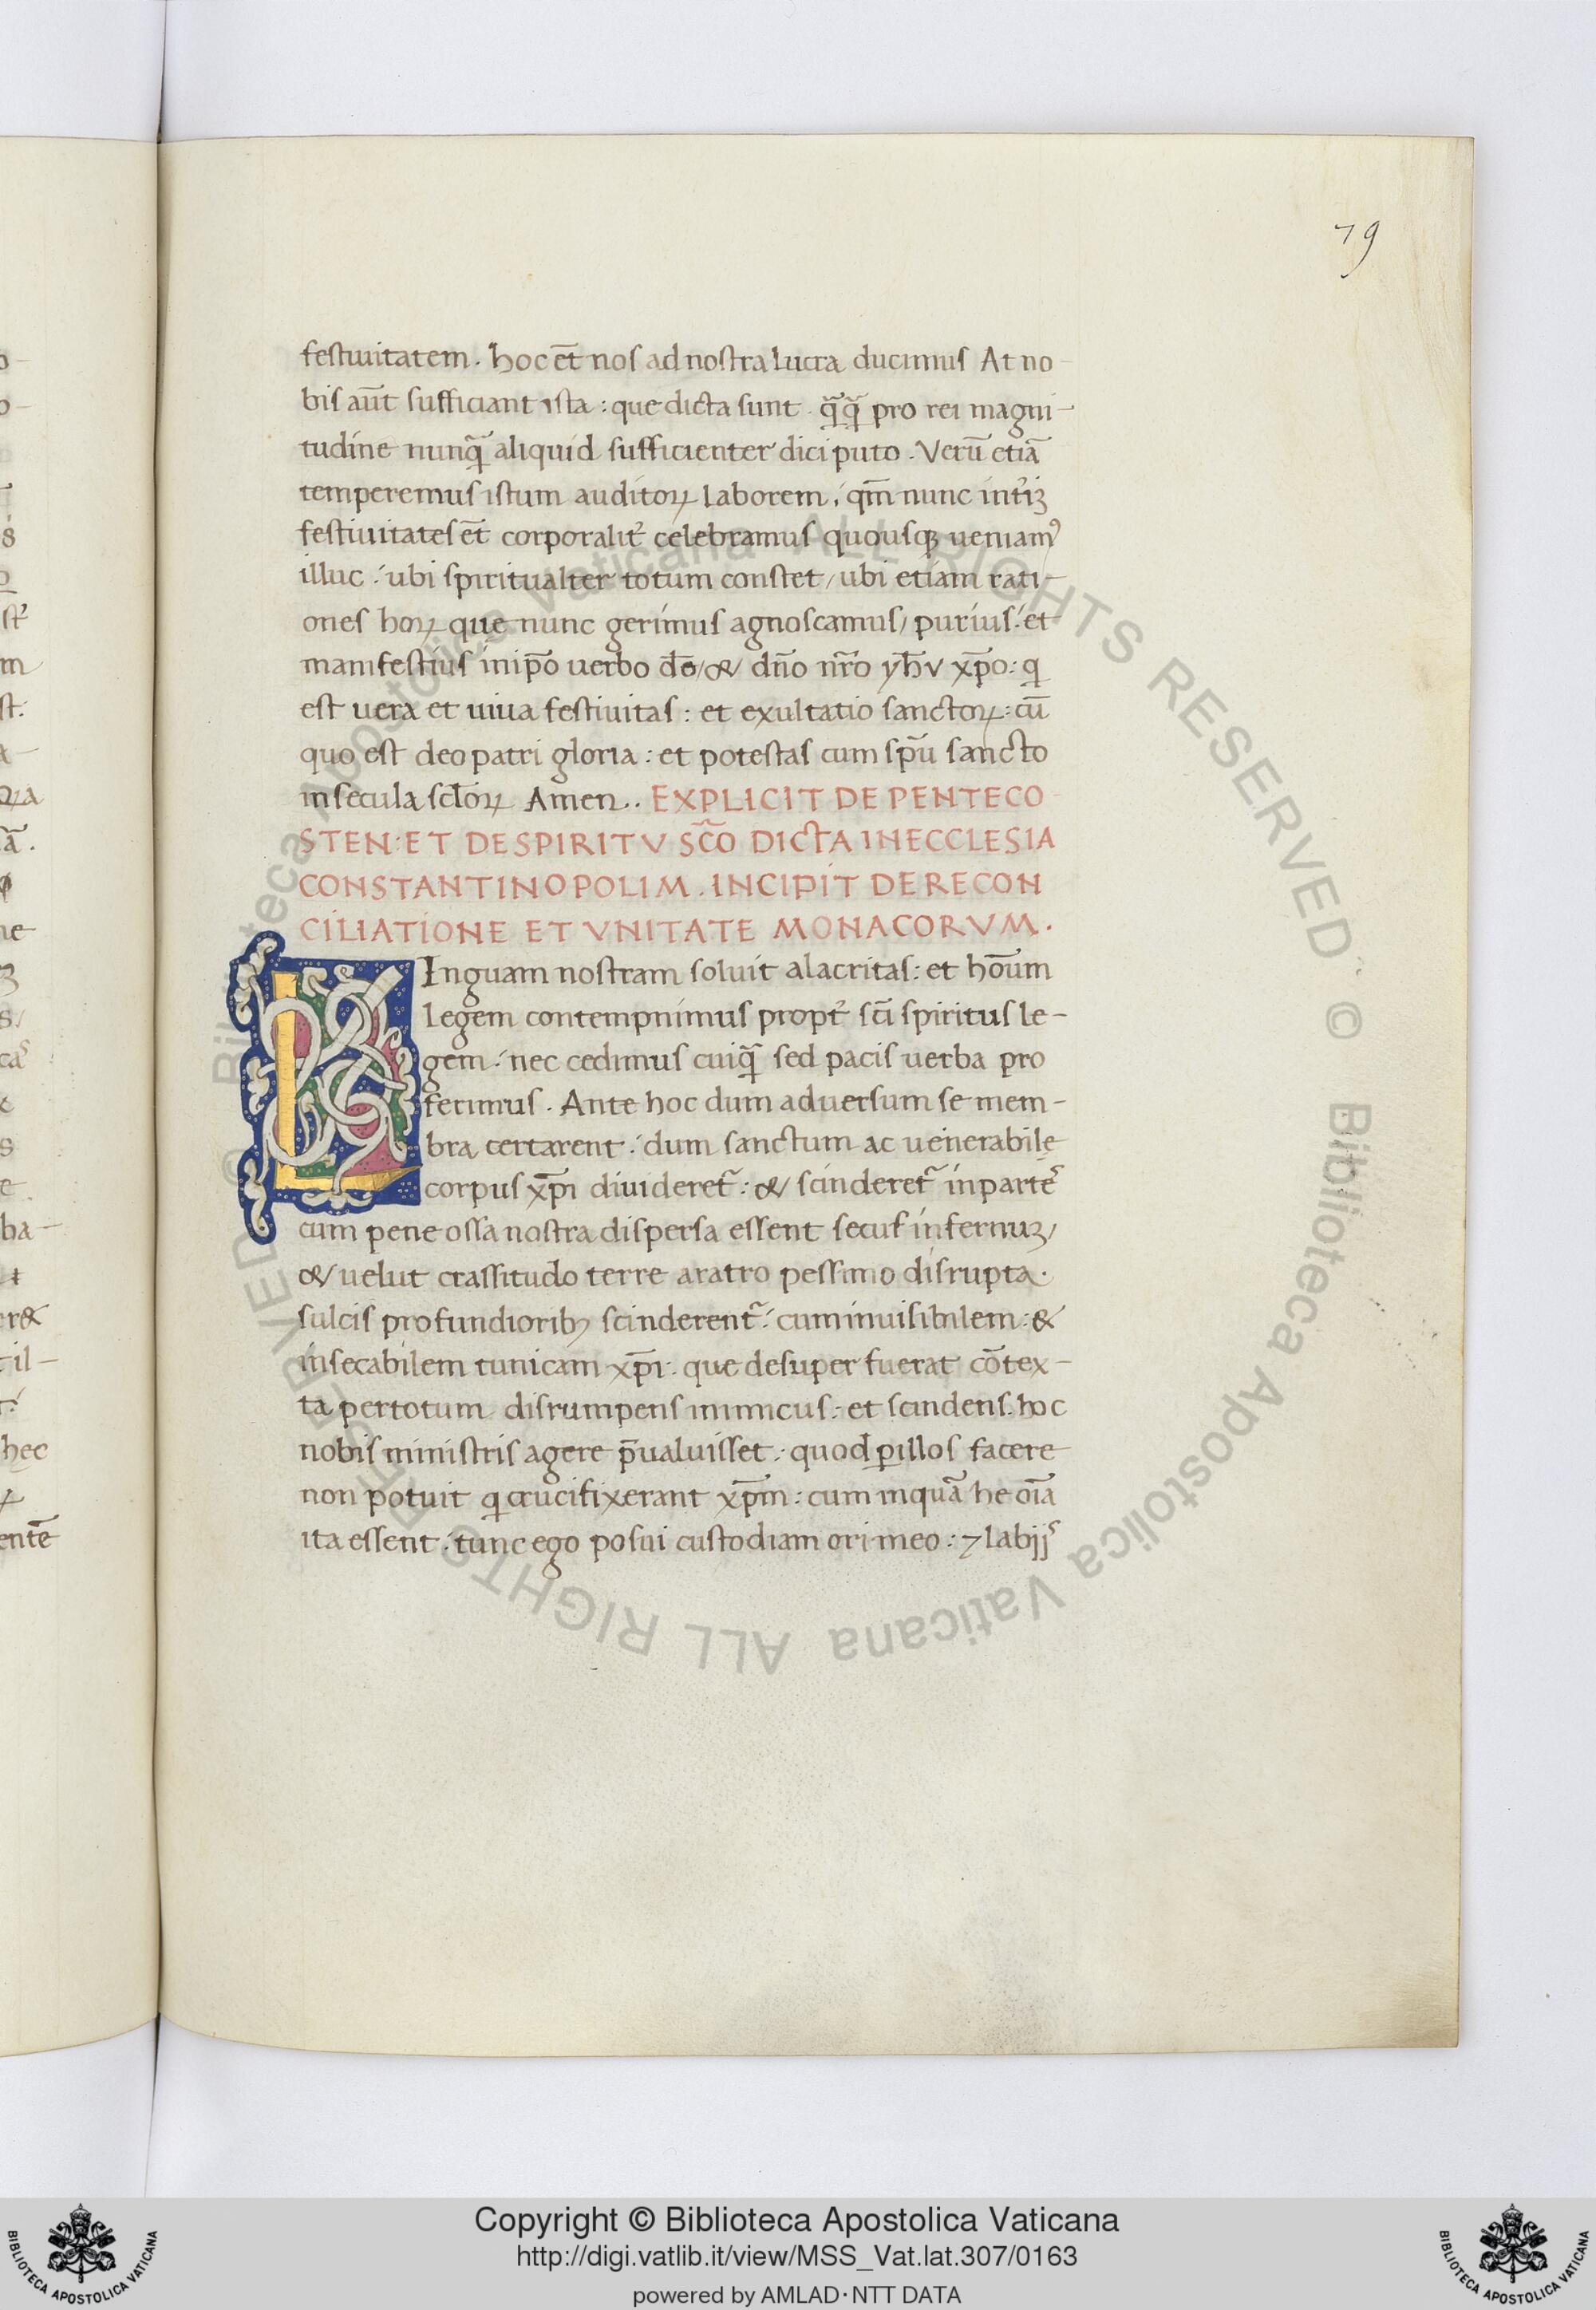 79
festiuitatem. hoc et̅ nos ad nostra lucra ducimus At no-
bis aut̅ sufficiant ista: que dicta sunt. qꝫ̃qꝫ̃ pro rei magni-
tudine nunq̃ aliquid sufficienter dici puto. Veru̅ etia̅
temperemus istum auditoꝝ laborem: qm̅ nunc
festiuitates et̅ corporalit᷑ celebramus quousqꝫ ueniamꝰ
illuc: ubi spiritualter totum constet/ ubi etiam rati-
ones hoꝝ que nunc gerimus agnoscamus/ purius: et
manifestius in ip̅o uerbo do̅/ & dn̅o nr̅o yhv̅ xp̅o: q
est uera et uiua festiuitas: et exultatio sanctoꝝ: cu̅
quo est deo patri gloria: et potestas cum spu̅ sancto
in secula sclo̅ꝝ Amen.. EXPLICIT DE PENTECO
STEN: ET DE SPIRITV SC̅O DICTA IN ECCLESIA
CONSTANTINOPOLIM. INCIPIT DE RECON
CILIATIONE ET VNITATE MONACORVM.
LInguam nostram soluit alacritas: et ho̅um
legem contempnimus propt᷑ sc̅i spiritus le-
gem: nec cedimus cuiq̃ sed pacis uerba pro
ferimus. Ante hoc dum aduersum se mem-
bra certarent: dum sanctum ac uenerabile
corpus xp̅i diuideret᷑: & scinderet᷑ in parteˢ
cum pene ossa nostra dispersa essent secus infernuꝫ/
& uelut crassitudo terre aratro pessimo disrupta.
sulcis profundioribꝫ scinderent᷑: cum inuisibilem: &
insecabilem tunicam xp̅i. que desuper fuerat co̅tex-
ta per totum disrumpens inimicus: et scindens. hoc
nobis ministris agere p̅ualuisset: quod ꝑ illos facere
non potuit q crucifixerant xp̅m: cum inqua̅ he oi̅a
ita essent: tunc ego posui custodiam ori meo: ⁊ labijˢ
Copyright © Biblioteca Apostolica Vaticana
http://digi.vatlib.it/view/MSS_Vat.lat.307/0163
powered by AMLAD·NTT DATA
BIBLIOTECA APOSTOLICA VATICANA
BIBLIOTECA APOSTOLICA VATICANA
© Biblioteca Apostolica Vaticana ALL RIGHTS RESERVED © Biblioteca Apostolica Vaticana ALL RIGHTS RESERVED